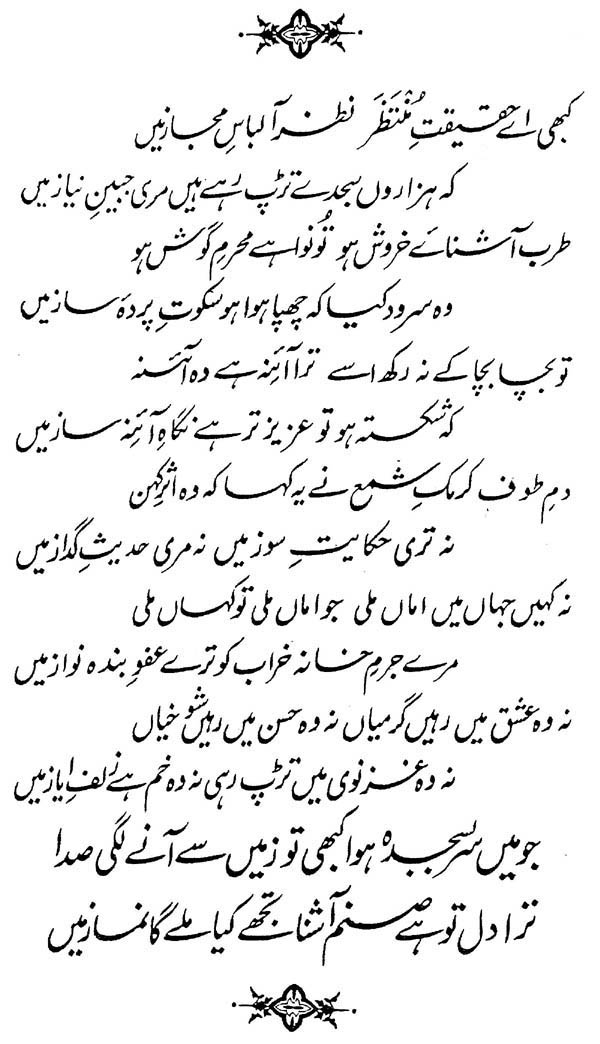 کبھی اے حقیقتِ مُنْتَظَر نظر آ لباسِ مجاز میں
کہ ہزاروں سجدے تڑپ رہے ہیں مری جبینِ نیاز میں
طرب آشنائے خروش ہو تُو نوا ہے محرمِ گوش ہو
وہ سرود کیا کہ چھپا ہوا ہو سکوتِ پردۂ ساز میں
تو بچا بچا کے نہ رکھ اسے ترا آئنہ ہے وہ آئنہ
کہ شکستہ ہو تو عزیز تر ہے نگاہِ آئنہ ساز میں
دمِ طوف کرمکِ شمع نے یہ کہا کہ وہ اثرِ کہن
نہ تری حکایتِ سوز میں نہ مری حدیثِ گداز میں
نہ کہیں جہاں میں اماں ملی جو اماں ملی تو کہاں ملی
مرے جرمِ خانہ خراب کو ترے عفوِ بندہ نواز میں
نہ وہ عشق میں رہیں گرمیاں نہ وہ حسن میں رہیں شوخیاں
نہ وہ غزنوی میں تڑپ رہی نہ وہ خم ہے زلفِ ایاز میں
جو میں سر بسجدہ ہوا کبھی تو زمیں سے آنے لگی صدا
ترا دل تو ہے صنم آشنا تجھے کیا ملے گا نماز میں